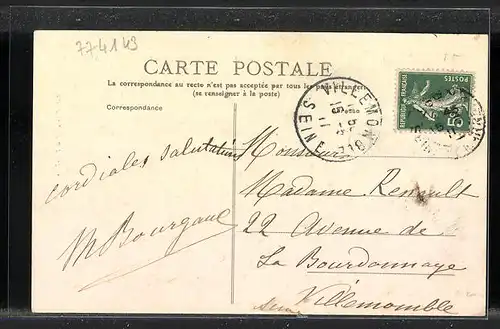 774143
CARTE POSTALE
La correspondance au recto n'est pas acceptée par tous les pays étrangers
(se renseigner à la poste)
Correspondance
RÉPUBLIQUE FRANÇAISE
POSTES
VILLEMOM
SEINE
cordiales salutations
M Bourgaul
Monsieur
Madame Renault
22 Avenue de
La Bourdonnaye
Seine
Villemomble